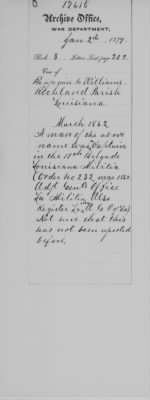 17616
Archive Office,
WAR DEPARTMENT,
Jan 2d 1879.
Book 3 Letters Sent, page 202.
Case of
Benjamin C. Williams.
Richland Parish
Louisiana
March 1862
A man of the above
name was Captain
in the 10th Brigade
Louisiana Militia
(Order No 232, Mar 1862
Adjt Genls Office
La Militia) Also
Register
Not sure that this
has not been reported
before.